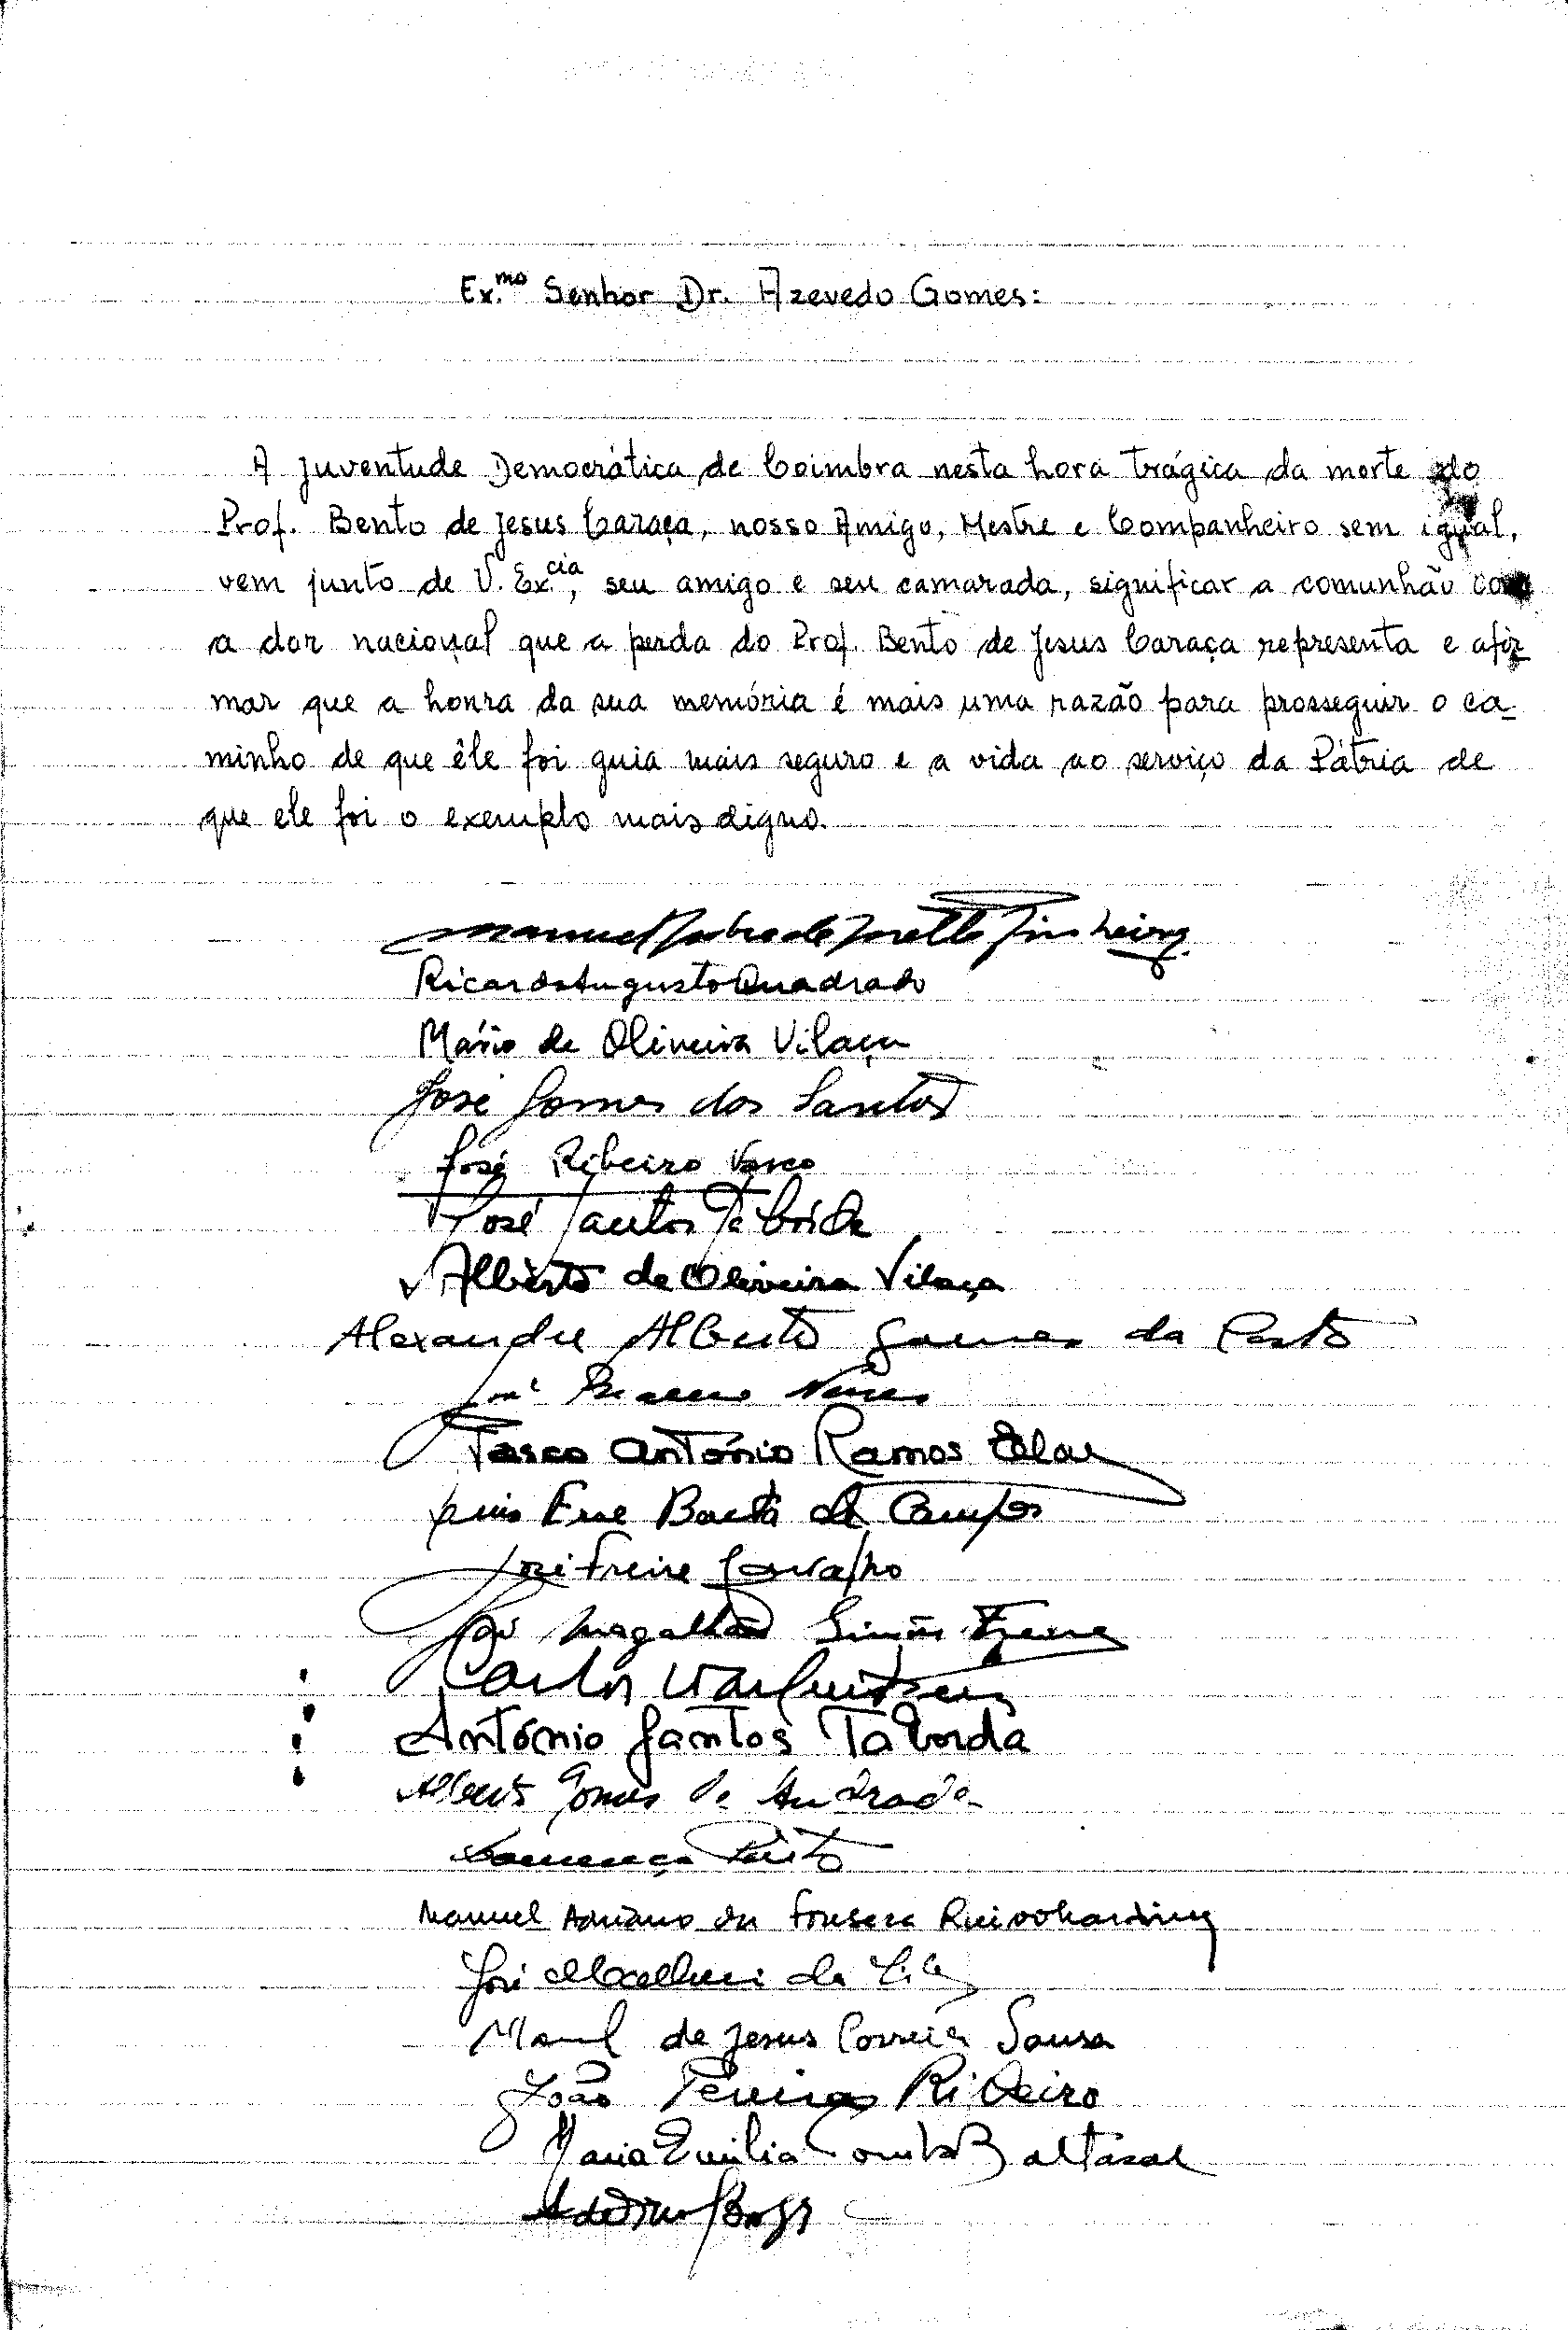 Ex.mo Senhor Dr. Azevedo Gomes:
A Juventude Democrática de Coimbra nesta hora trágica da morte do
Prof. Bento de Jesus Caraça, nosso Amigo, Mestre e Companheiro sem igual,
vem junto de V. Ex.cia, seu amigo e seu camarada, significar a comunhão com
a dor nacional que a perda do Prof. Bento de Jesus Caraça representa e afir
mar que a honra da sua memória é mais uma razão para prosseguir o ca-
minho de que êle foi guia mais seguro e a vida ao serviço da Pátria de
que ele foi o exemplo mais digno.
Manuel
Ricardo Augusto Quadrado
Mário de Oliveira Vilaça
José Gomes dos Santos
José Ribeiro Vasco
José Santos Taborda
Alberto de Oliveira Vilaça
Alexandre Alberto Gomes da Costa
José Nunes
Vasco António Ramos
Luis Baeta de Campos
José Freire Carvalho
José Magalhães Simões Freire
Carlos
António Santos Taborda
Alberto Gomes de Andrade
Lourenço
Manuel Adriano da Fonseca
José da
Manuel de Jesus Correia Sousa
João Ribeiro
Maria Emilia Baltasar